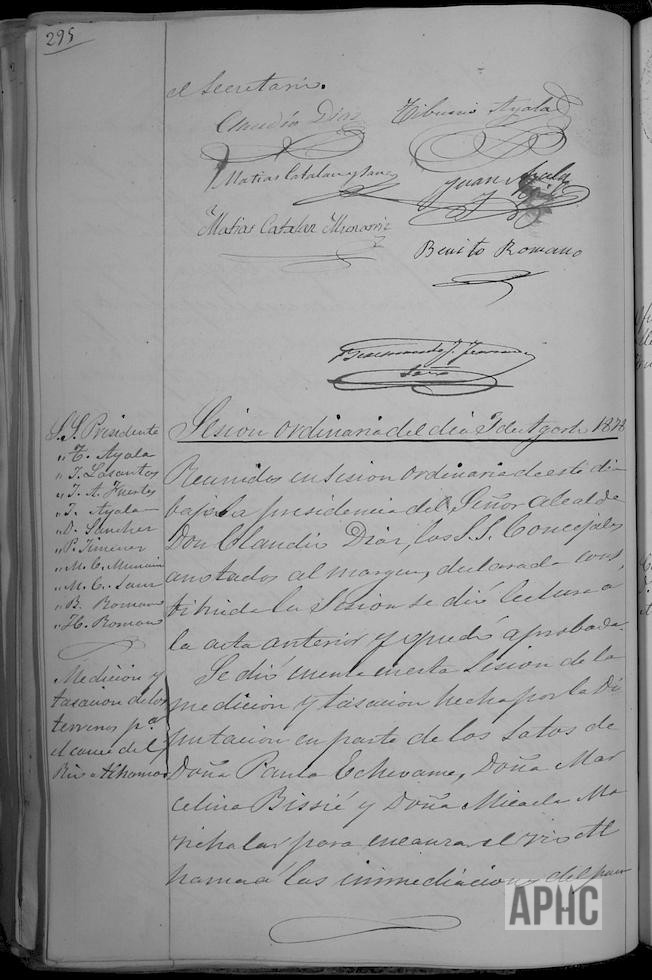 295
el Secretario.
Claudio Diaz
Tiburcio Ayala
Matias Catalan y Sanz
Juan Ayala
Matias Catalan
Benito Romano
Sesion ordinaria del dia 3 de Agosto 1878
S.S. Presidente
" T. Ayala
" T. Losantos
" J. A. Fuertes
" J. Ayala
" D. Sanchez
" P. Jimenez
" M. C.
" M. C. Sanz
" B. Romano
" H. Romano
Medicion y
tasacion de los
terrenos pª
el cauce del
Rio Alhama
Reunidos en sesion ordinaria de este dia
bajo la presidencia del Señor Alcalde
Don Claudio Diaz, los S.S. Concejales
anotados al margen, declarada cons
tituida la Sesion se dió lectura a
la acta anterior y quedó aprobada.
Se dió cuenta en esta Sesion de la
medicion y tasacion hecha por la Di
putacion en parte de los sotos de
Doña Paula Echevarria, Doña Mar
celina Bissié y Doña Micaela Ma
richalar para encauzar el rio Al
hama á las inmediaciones del
APHC